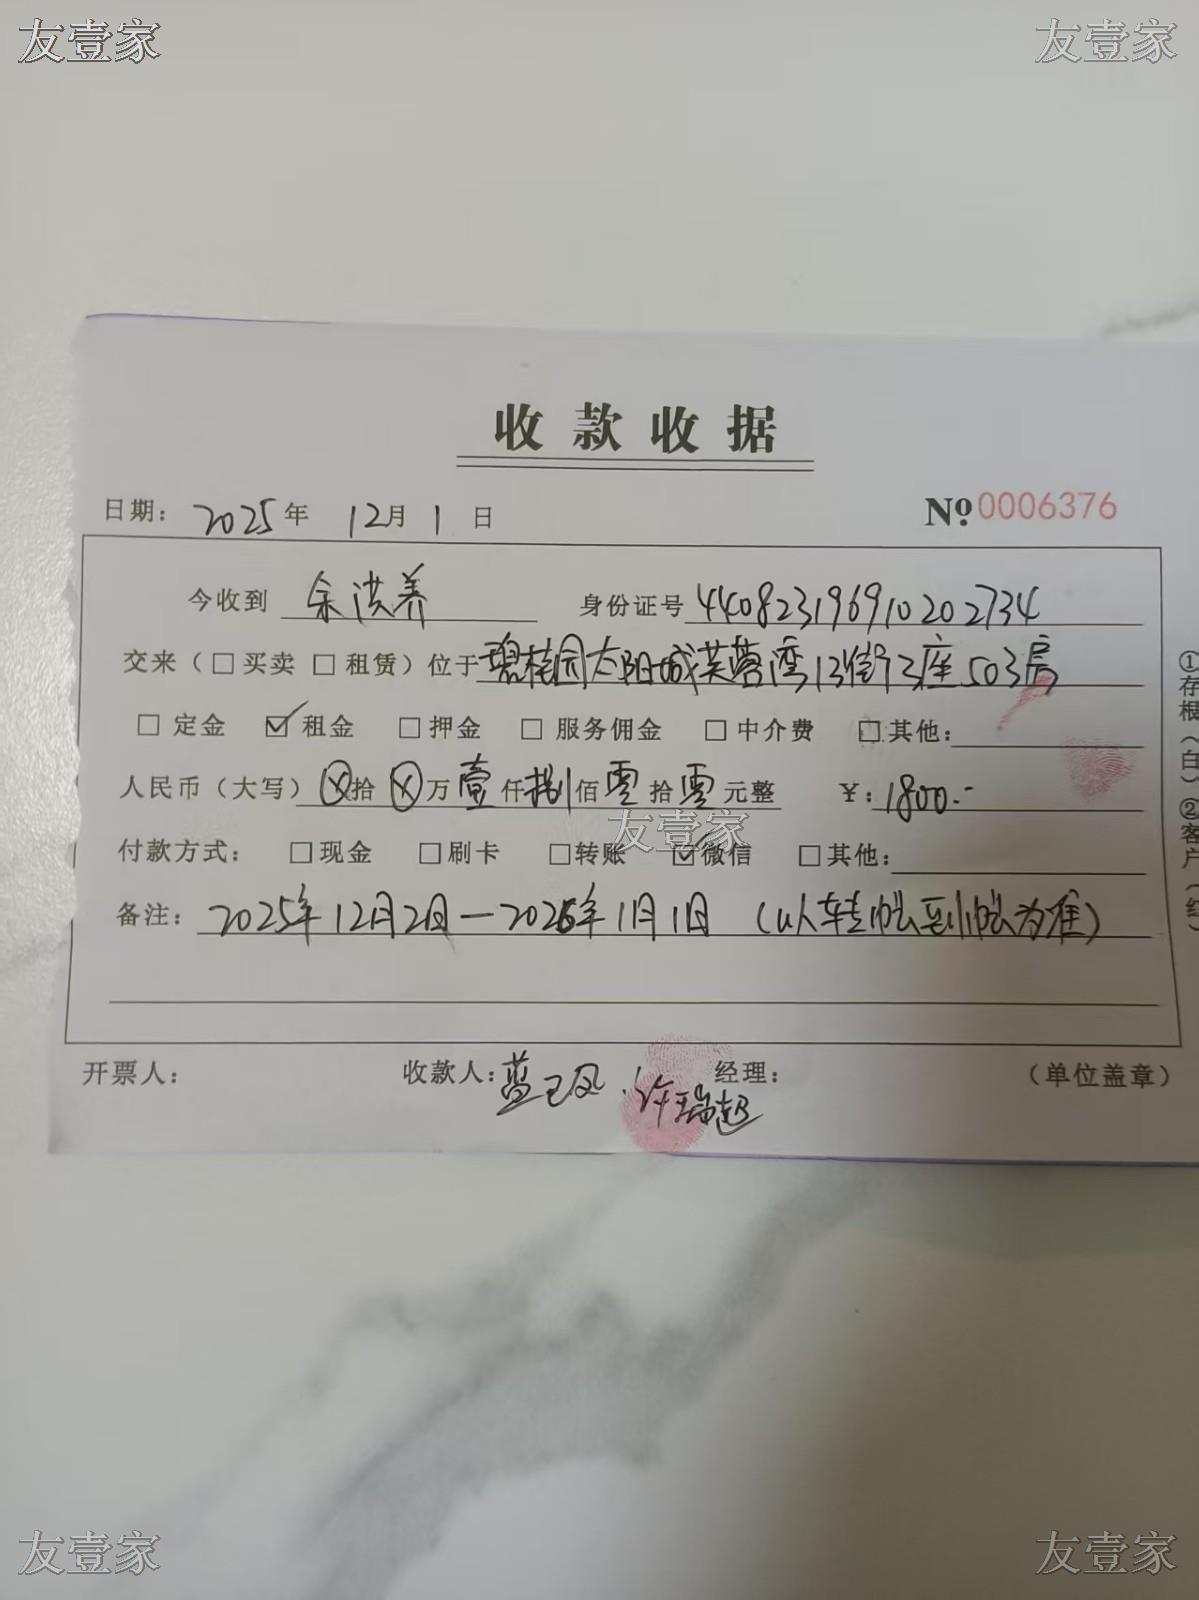 友壹家 友壹家
收款收据
日期：2025年 12月 1 日 №0006376
今收到 余洪养 身份证号 440823196910202734
交来（□买卖 □租赁）位于碧桂园太阳城芙蓉湾13街3座503房
□定金 ☑租金 □押金 □服务佣金 □中介费 □其他：
人民币（大写）ⓧ拾ⓧ万壹仟捌佰零拾零元整 ¥：1800.-
友壹家
付款方式： □现金 □刷卡 □转账 ☑微信 □其他：
备注：2025年12月2日—2026年1月1日（以转帐到帐为准）
开票人： 收款人： 许瑞超 经理： （单位盖章）
①存根（白）②客户（红）
友壹家 友壹家